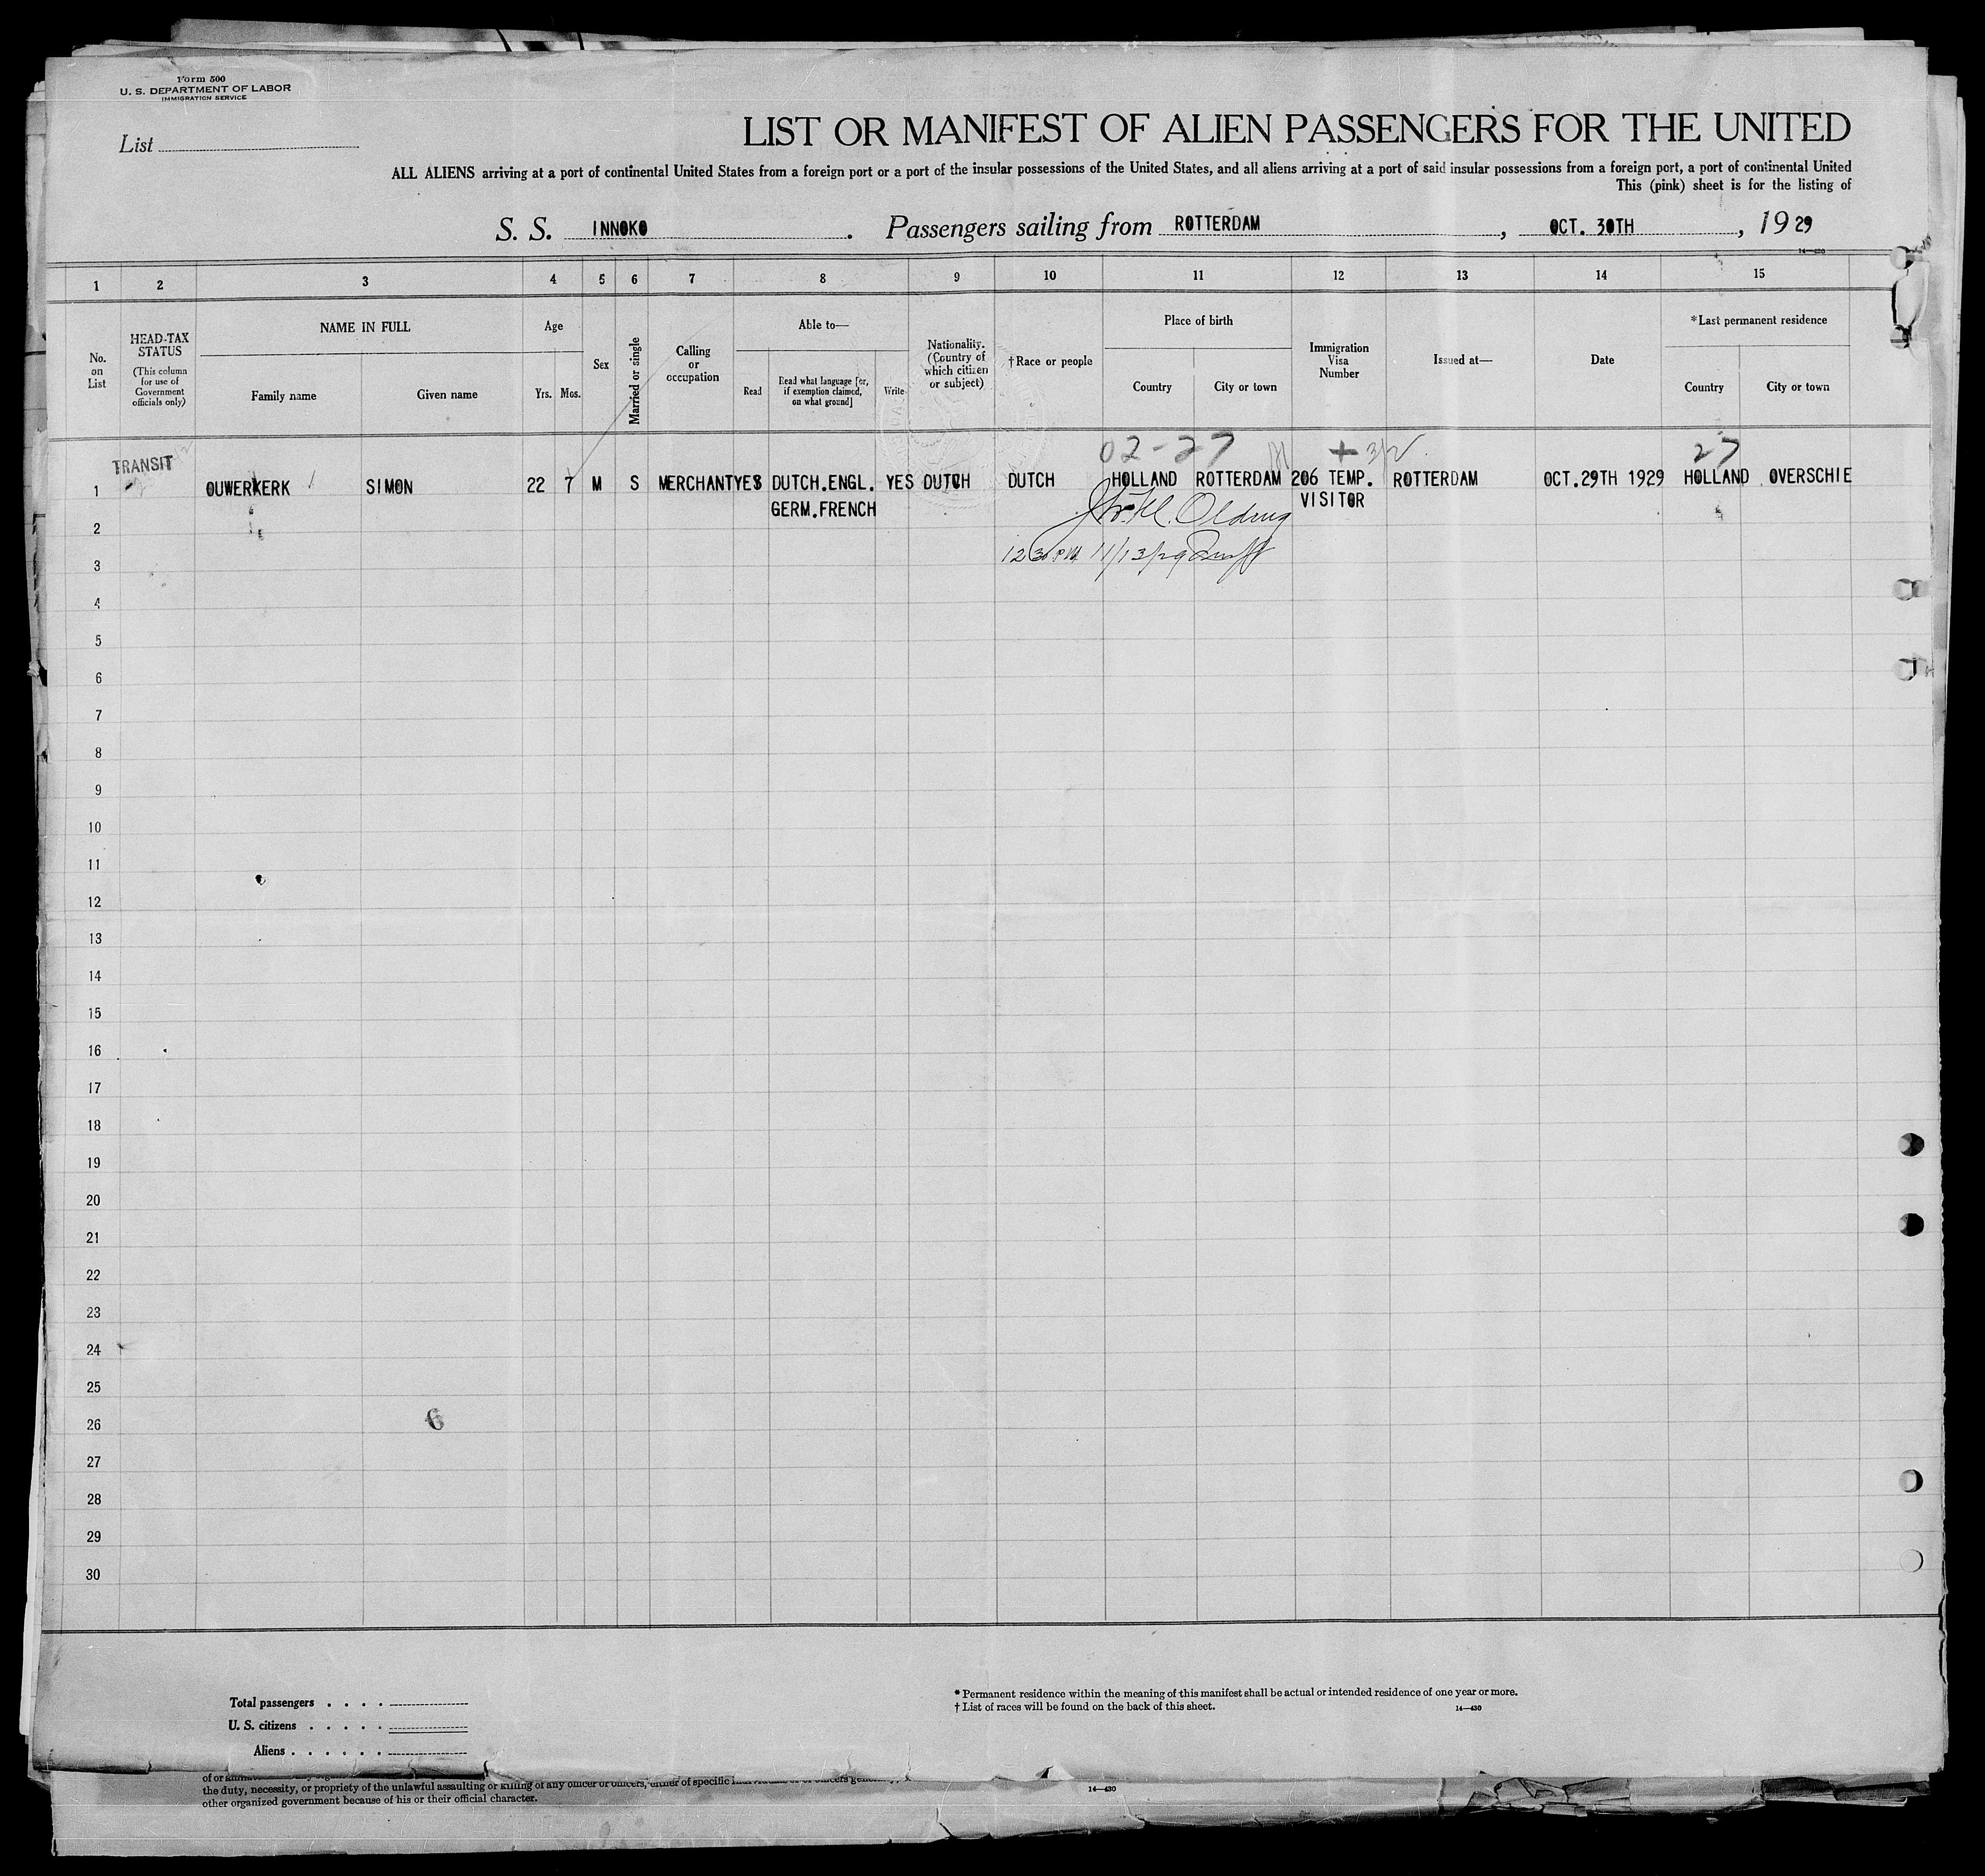 Form 500
U. S. DEPARTMENT OF LABOR
IMMIGRATION SERVICE
List
LIST OR MANIFEST OF ALIEN PASSENGERS FOR THE UNITED
ALL ALIENS arriving at a port of continental United States from a foreign port or a port of the insular possessions of the United States, and all aliens arriving at a port of said insular possessions from a foreign port, a port of continental United
This (pink) sheet is for the listing of
S. S. INNOKO. Passengers sailing from ROTTERDAM, OCT. 30TH, 19 29
14—430
1 2 3 4 5 6 7 8 9 10 11 12 13 14 15
No. on List
HEAD-TAX STATUS
(This column for use of Government officials only)
NAME IN FULL
Family name
Given name
Age
Yrs. Mos.
Sex
Married or single
Calling or occupation
Able to—
Read
Read what language [or, if exemption claimed, on what ground]
Write
Nationality. (Country of which citizen or subject)
†Race or people
Place of birth
Country
City or town
Immigration Visa Number
Issued at—
Date
*Last permanent residence
Country
City or town
02-27 + 3/2 27
TRANSIT
1 OUWERKERK SIMON 22 7 M S MERCHANT YES DUTCH.ENGL. YES DUTCH DUTCH HOLLAND ROTTERDAM 206 TEMP. ROTTERDAM OCT.29TH 1929 HOLLAND OVERSCHIE
GERM.FRENCH VISITOR
2
12 30 PM 11/13/29
3
4
5
6
7
8
9
10
11
12
13
14
15
16
17
18
19
20
21
22
23
24
25
26
6
27
28
29
30
Total passengers . . . .
U. S. citizens . . . . .
Aliens . . . . . .
* Permanent residence within the meaning of this manifest shall be actual or intended residence of one year or more.
† List of races will be found on the back of this sheet.
14—430
the duty, necessity, or propriety of the unlawful assaulting or killing of any officer or officers, either of specific
other organized government because of his or their official character.
14—430